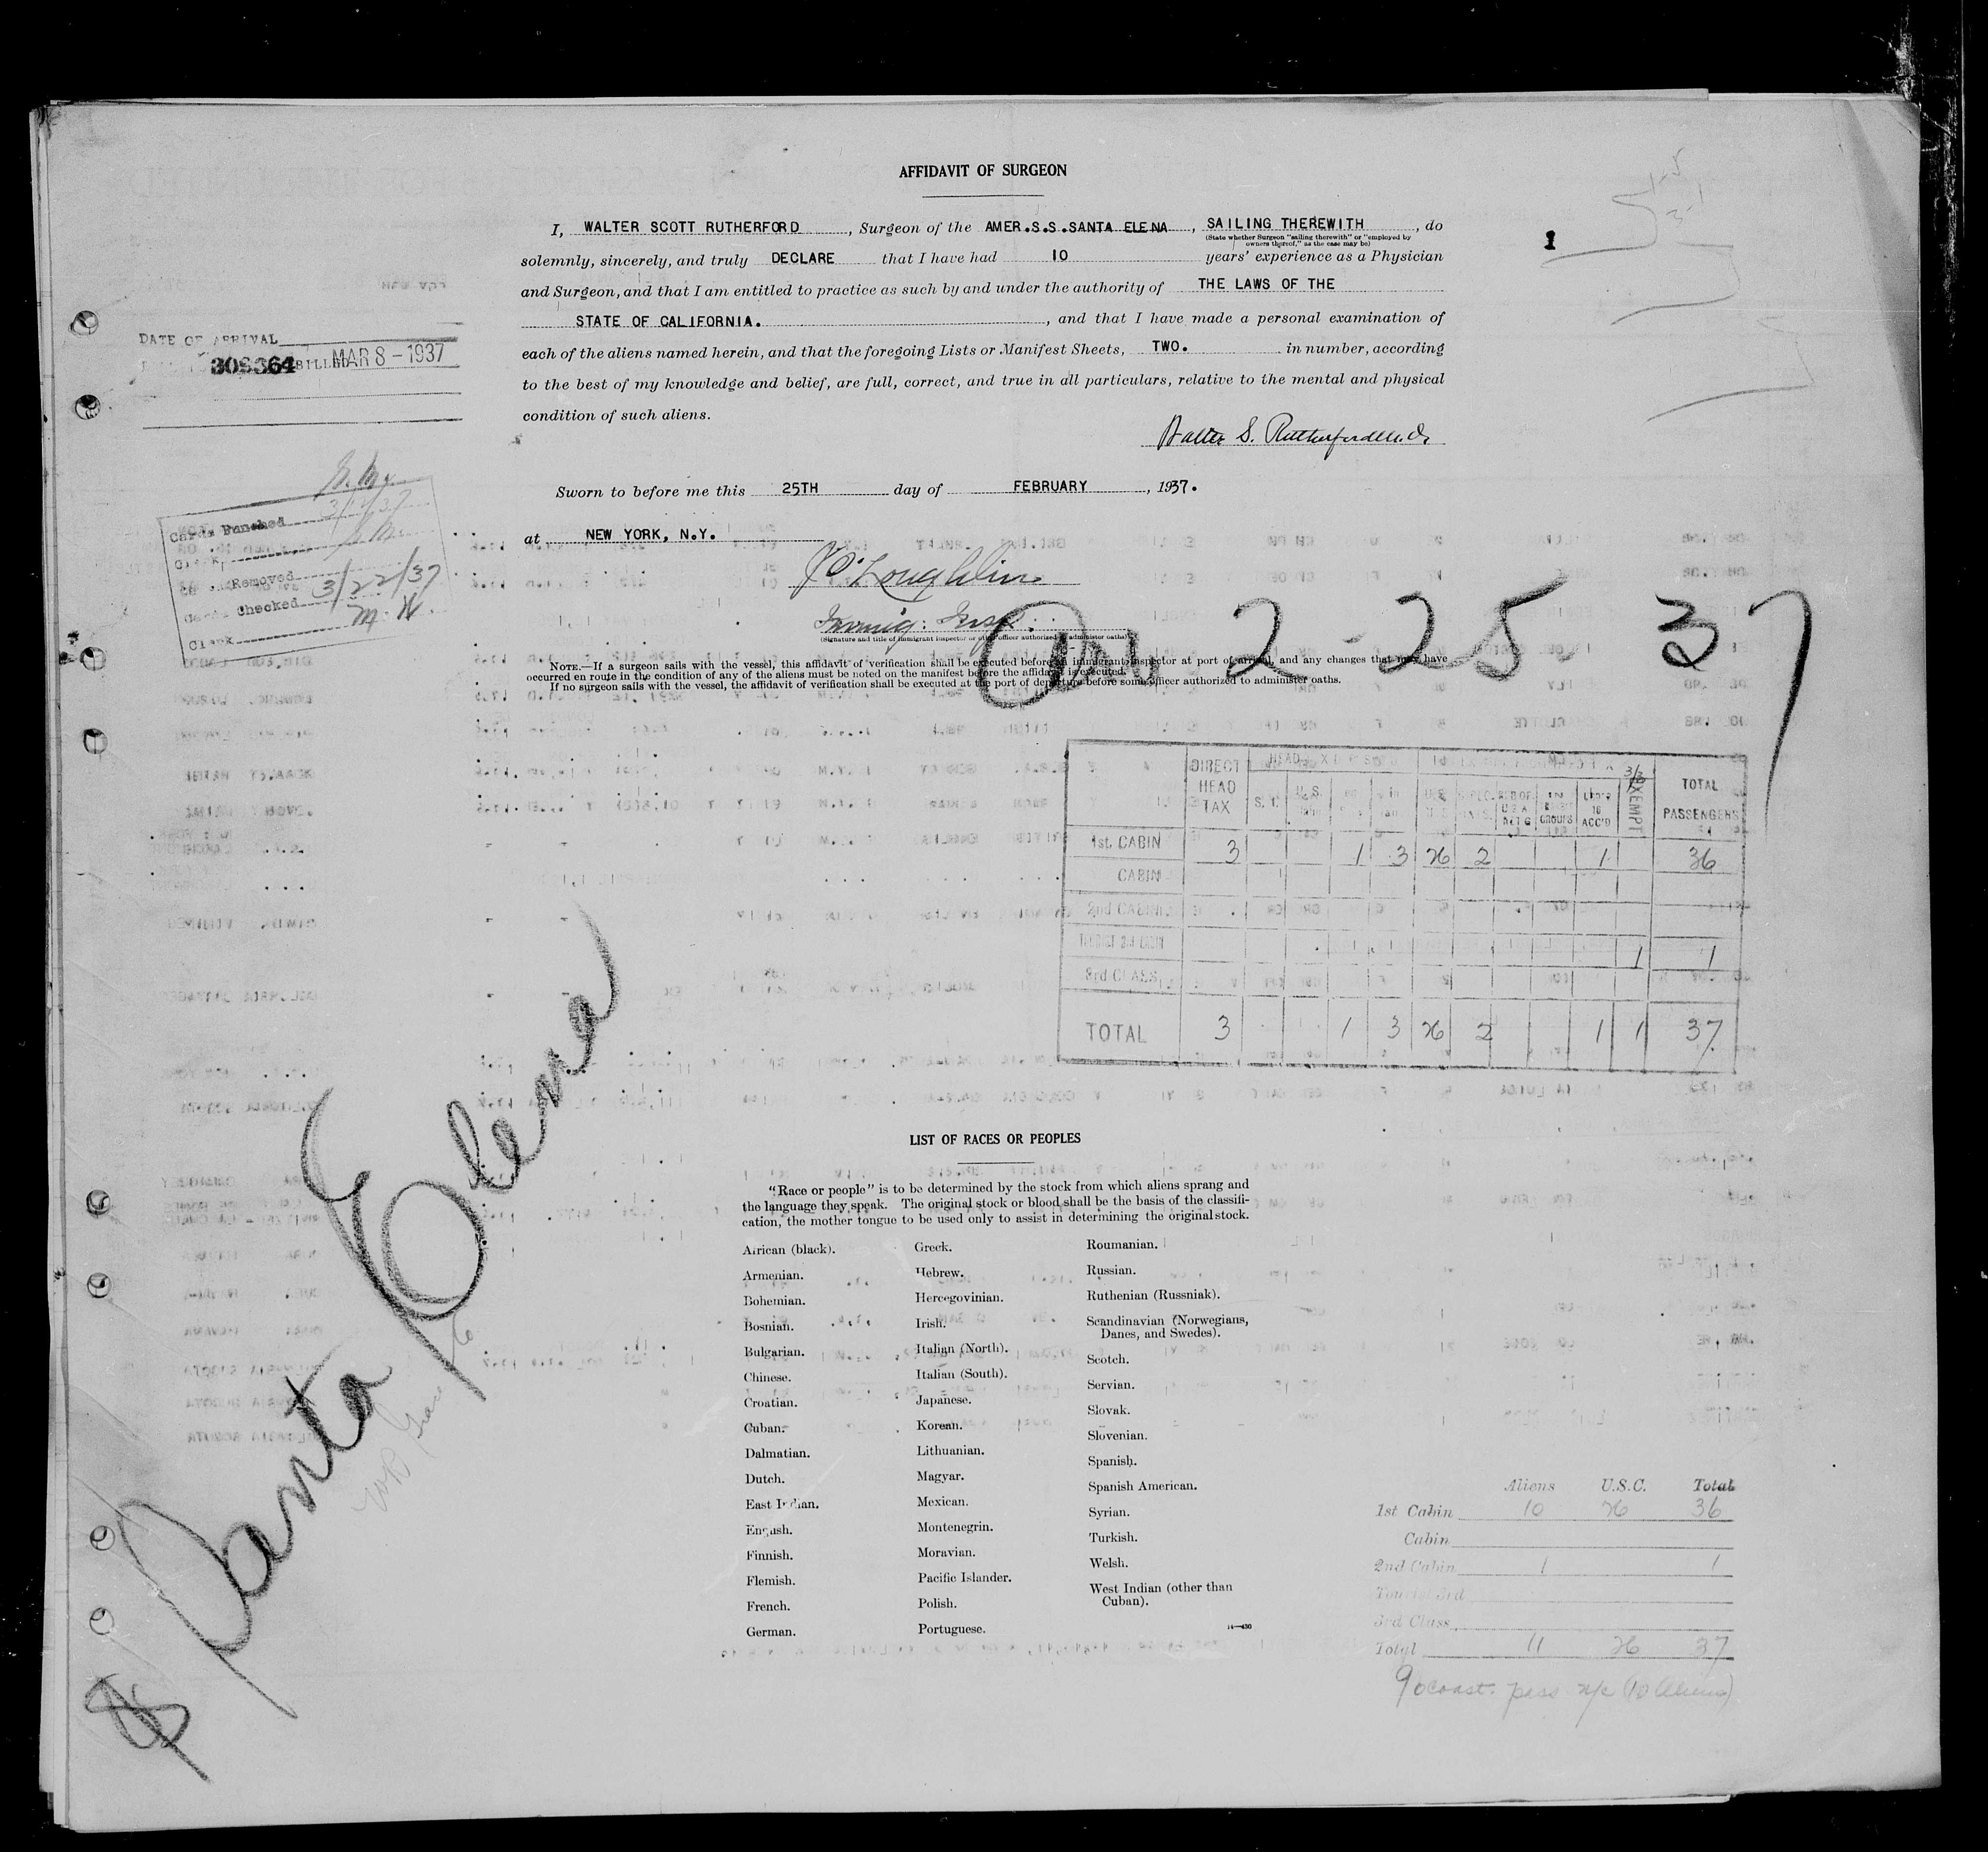 AFFIDAVIT OF SURGEON
I, WALTER SCOTT RUTHERFORD, Surgeon of the AMER.S.S.SANTA ELENA, SAILING THEREWITH, do
(State whether Surgeon "sailing therewith" or "employed by owners thereof," as the case may be)
solemnly, sincerely, and truly DECLARE that I have had 10 years' experience as a Physician
and Surgeon, and that I am entitled to practice as such by and under the authority of THE LAWS OF THE
STATE OF CALIFORNIA., and that I have made a personal examination of
each of the aliens named herein, and that the foregoing Lists or Manifest Sheets, TWO. in number, according
to the best of my knowledge and belief, are full, correct, and true in all particulars, relative to the mental and physical
condition of such aliens.
Walter S. Rutherford M.D.
1
DATE OF ARRIVAL
BILLED MAR 8-1937
Sworn to before me this 25TH day of FEBRUARY, 1937.
at NEW YORK, N.Y.
J O'Loughlin
Immig. Insp.
(Signature and title of immigrant inspector or other officer authorized to administer oaths)
Cards Punched
Clerk
Removed
Cards Checked 3/22/37
Clerk M. W.
Arr 2-25-37
NOTE.—If a surgeon sails with the vessel, this affidavit of verification shall be executed before an immigrant inspector at port of arrival, and any changes that may have
occurred en route in the condition of any of the aliens must be noted on the manifest before the affidavit is executed.
If no surgeon sails with the vessel, the affidavit of verification shall be executed at the port of departure before some officer authorized to administer oaths.
DIRECT HEAD TAX EXEMPT TOTAL PASSENGERS
1st CABIN 3 1 3 26 2 1 36
CABIN
2nd CABIN
TOURIST 3rd CABIN 1 1
3rd CLASS
TOTAL 3 1 3 26 2 1 1 37
Santa Elena
LIST OF RACES OR PEOPLES
"Race or people" is to be determined by the stock from which aliens sprang and
the language they speak. The original stock or blood shall be the basis of the classifi-
cation, the mother tongue to be used only to assist in determining the original stock.
African (black).
Armenian.
Bohemian.
Bosnian.
Bulgarian.
Chinese.
Croatian.
Cuban.
Dalmatian.
Dutch.
East Indian.
English.
Finnish.
Flemish.
French.
German.
Greek.
Hebrew.
Hercegovinian.
Irish.
Italian (North).
Italian (South).
Japanese.
Korean.
Lithuanian.
Magyar.
Mexican.
Montenegrin.
Moravian.
Pacific Islander.
Polish.
Portuguese.
Roumanian.
Russian.
Ruthenian (Russniak).
Scandinavian (Norwegians,
Danes, and Swedes).
Scotch.
Servian.
Slovak.
Slovenian.
Spanish.
Spanish American.
Syrian.
Turkish.
Welsh.
West Indian (other than
Cuban).
14—430
Aliens U.S.C. Total
1st Cabin 10 26 36
Cabin
2nd Cabin 1 1
Tourist 3rd
3rd Class
Total 11 26 37